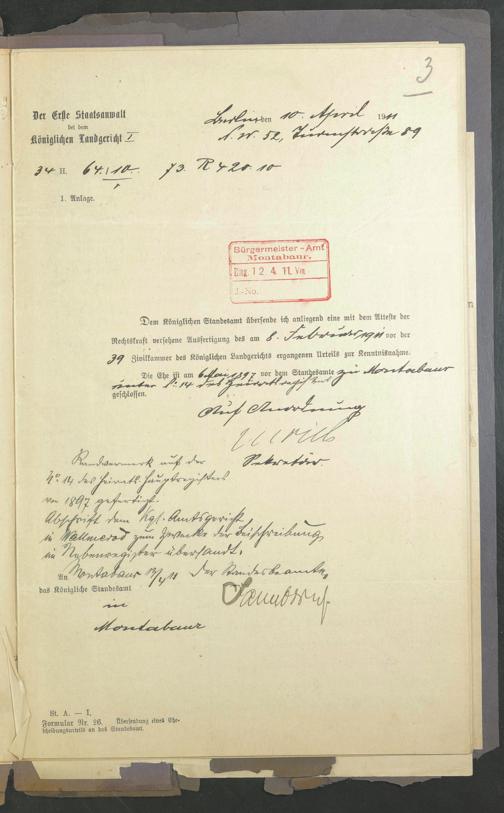 3
Der Erste Staatsanwalt
bei dem
Königlichen Landgericht I
Berlin, den 10. April 1911
N. W. 52, Turmstraße 89
34 H. 64./10. 73. R 420. 10
1. Anlage.
Bürgermeister-Amt
Montabaur.
Eing. 12 4. 11. Vm
J.-No.
Dem Königlichen Standesamt übersende ich anliegend eine mit dem Atteste der
Rechtskraft versehene Ausfertigung des am 8. Februar 1911 vor der
39 Zivilkammer des Königlichen Landgerichts ergangenen Urteils zur Kenntnisnahme.
Die Ehe ist am 1897 vor dem Standesamte zu Montabaur
unter No 14 des Heiratsregisters
geschlossen.
Auf Anordnung
Ulrich
Sekretär.
Randvermerk auf der
No 14 des Heirats Hauptregisters
von 1897 gefertigt.
Abschrift dem Kgl. Amtsgericht
in Wallmerod zum Zwecke der Beischreibung
im Nebenregister übersandt.
Montabaur 13/4 11 Der Standesbeamte,
An
das Königliche Standesamt
in
Montabaur
St. A. — I.
Formular Nr. 26. Übersendung eines Ehe-
scheidungsurteils an das Standesamt.